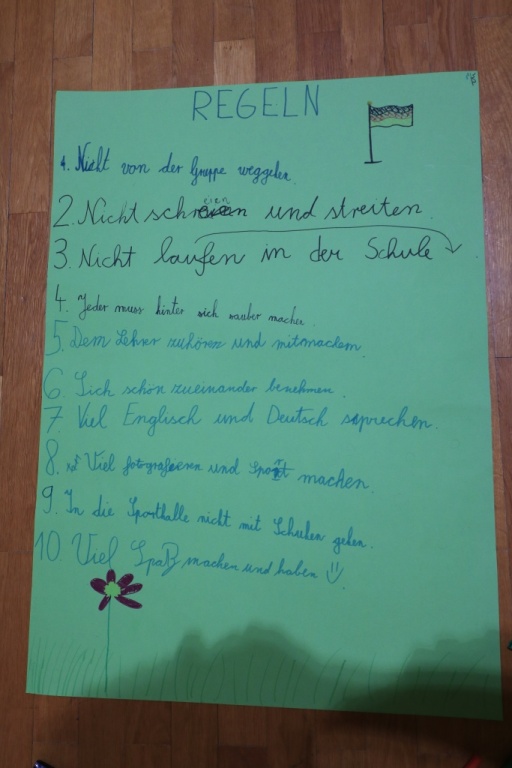 REGELN
1. Nicht von der Gruppe weggehen.
2. Nicht schreien und streiten.
3. Nicht laufen in der Schule
4. Jeder muss hinter sich sauber machen.
5. Dem Lehrer zuhören und mitmachen.
6. Sich schön zueinander benehmen.
7. Viel Englisch und Deutsch sprechen.
8. Viel fotografieren und Sport machen.
9. In die Sporthalle nicht mit Schuhen gehen.
10. Viel Spaß machen und haben